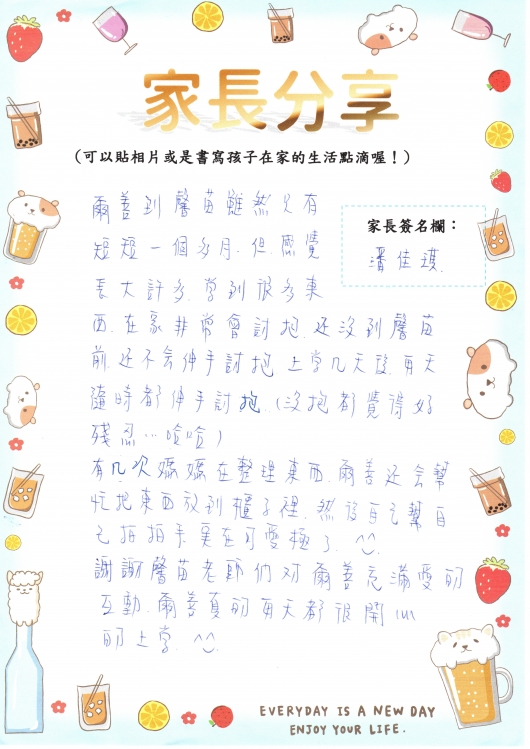 家長分享
(可以貼相片或是書寫孩子在家的生活點滴喔！)
家長簽名欄：
潘佳琪
爾善到馨苗雖然只有
短短一個多月,但感覺
長大許多,學到很多東
西,在家非常會討抱,還沒到馨苗
前,還不會伸手討抱,上學几天後,每天
隨時都伸手討抱,(沒抱都覺得好
殘忍…哈哈)
有几次媽媽在整理東西,爾善還會幫
忙把東西放到櫃子裡,然後自己幫自
己拍拍手,實在可愛極了.^^
謝謝馨苗老師們对爾善充滿愛的
互動,爾善真的每天都很開心
的上學.^^
EVERYDAY IS A NEW DAY
ENJOY YOUR LIFE.